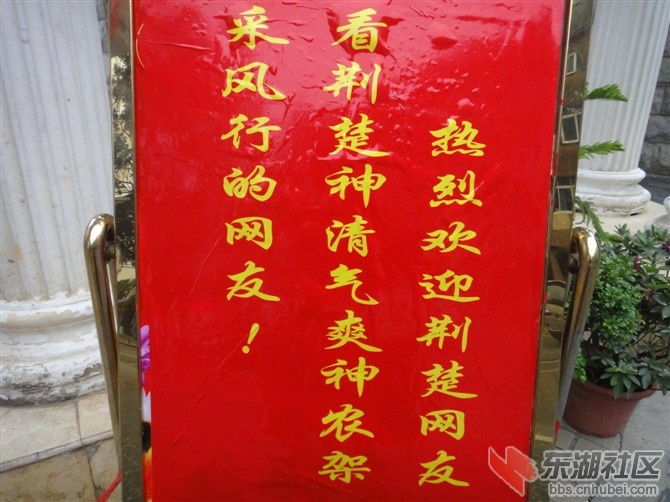 热烈欢迎荆楚网友
看荆楚神清气爽神农架
采风行的网友！
东湖社区
bbs.cnhubei.com